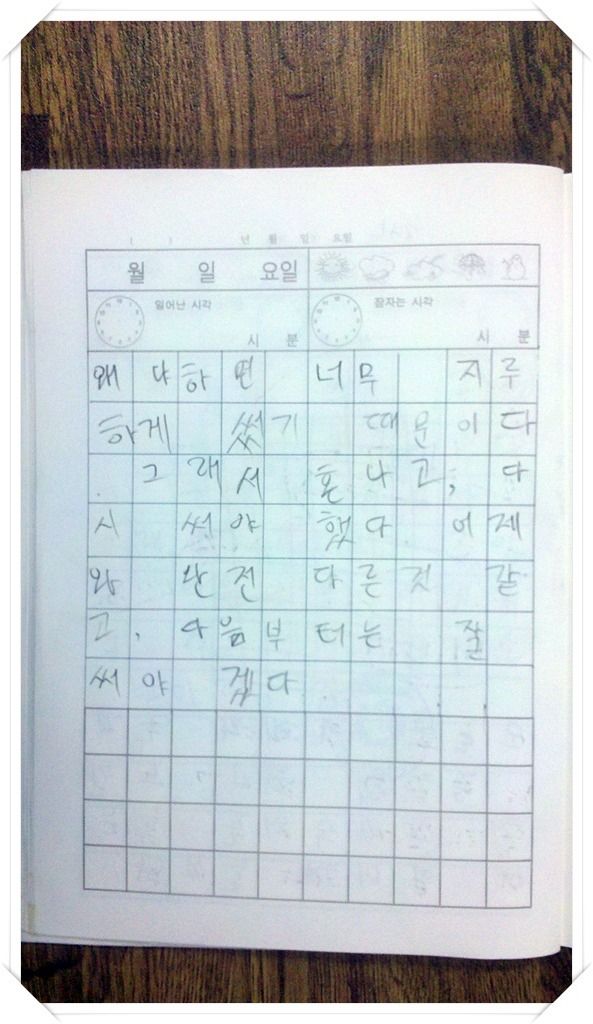 ( ) 년 월 일 요일
월 일 요일
일어난 시각 시 분 잠자는 시각 시 분
왜 냐 하 면 너 무 지 루
하 게 썼 기 때 문 이 다
. 그 래 서 혼 나 고, 다
시 써 야 했 다 어 제
와 완 전 다 른 것 같
고, 다 음 부 터 는 잘
써 야 겠 다